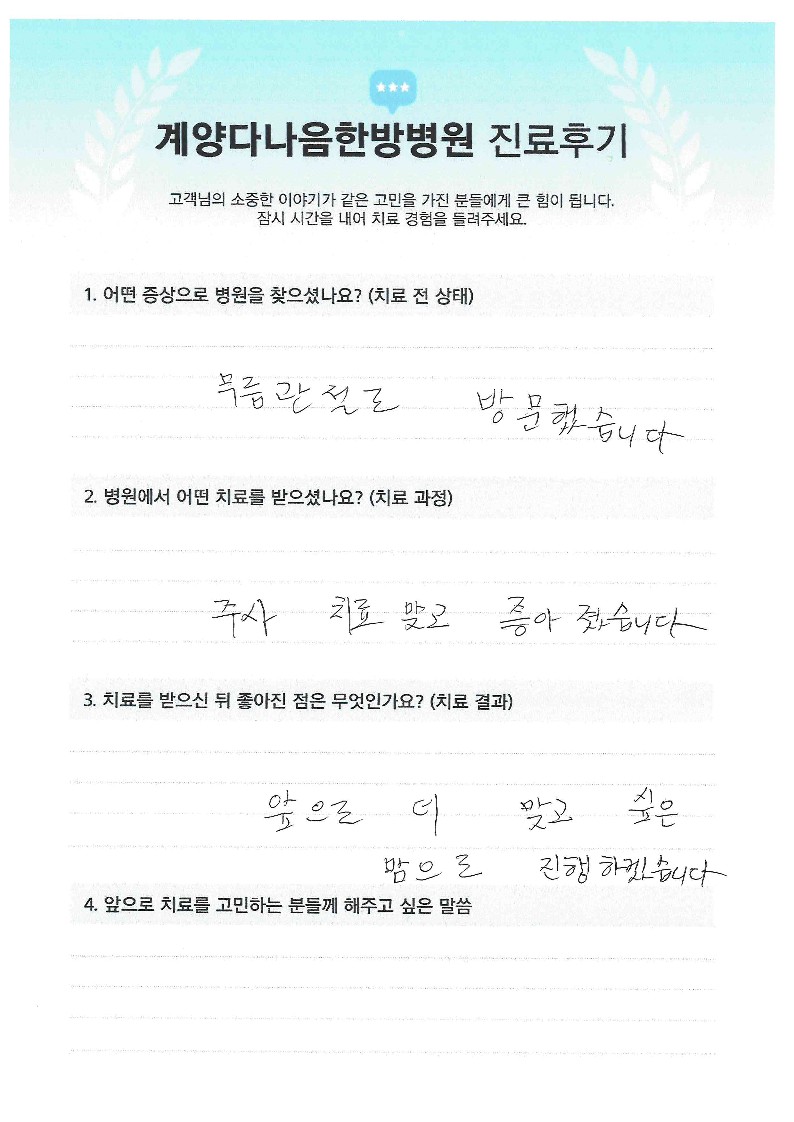 계양다나음한방병원 진료후기
고객님의 소중한 이야기가 같은 고민을 가진 분들에게 큰 힘이 됩니다.
잠시 시간을 내어 치료 경험을 들려주세요.
1. 어떤 증상으로 병원을 찾으셨나요? (치료 전 상태)
무릅관절로 방문했습니다
2. 병원에서 어떤 치료를 받으셨나요? (치료 과정)
주사 치료 맞고 좋아 졌습니다
3. 치료를 받으신 뒤 좋아진 점은 무엇인가요? (치료 결과)
앞으로 더 맞고 싶은
맘으로 진행하겠습니다
4. 앞으로 치료를 고민하는 분들께 해주고 싶은 말씀